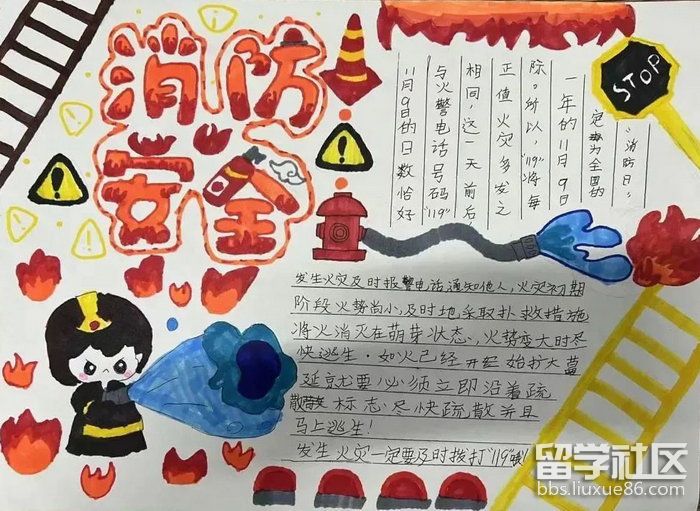 消防
安全
STOP
11月9日的日数恰好
与火警电话号码"119"
相同,这一天前后,
正值火灾多发之
际。所以,"119"将每
一年的11月9日
定为全国的
"消防日"。
发生火灾及时报警电话通知他人,火灾初期
阶段火势尚小,及时地采取扑救措施
将火消灭在萌芽状态、火势变大时尽
快逃生.如火已经开经始扩大蔓
延就要必须立即沿着疏
散标志尽快疏散并且
马上逃生!
发生火灾一定要及时拨打"119"哦!
留学社区
bbs.liuxue86.com